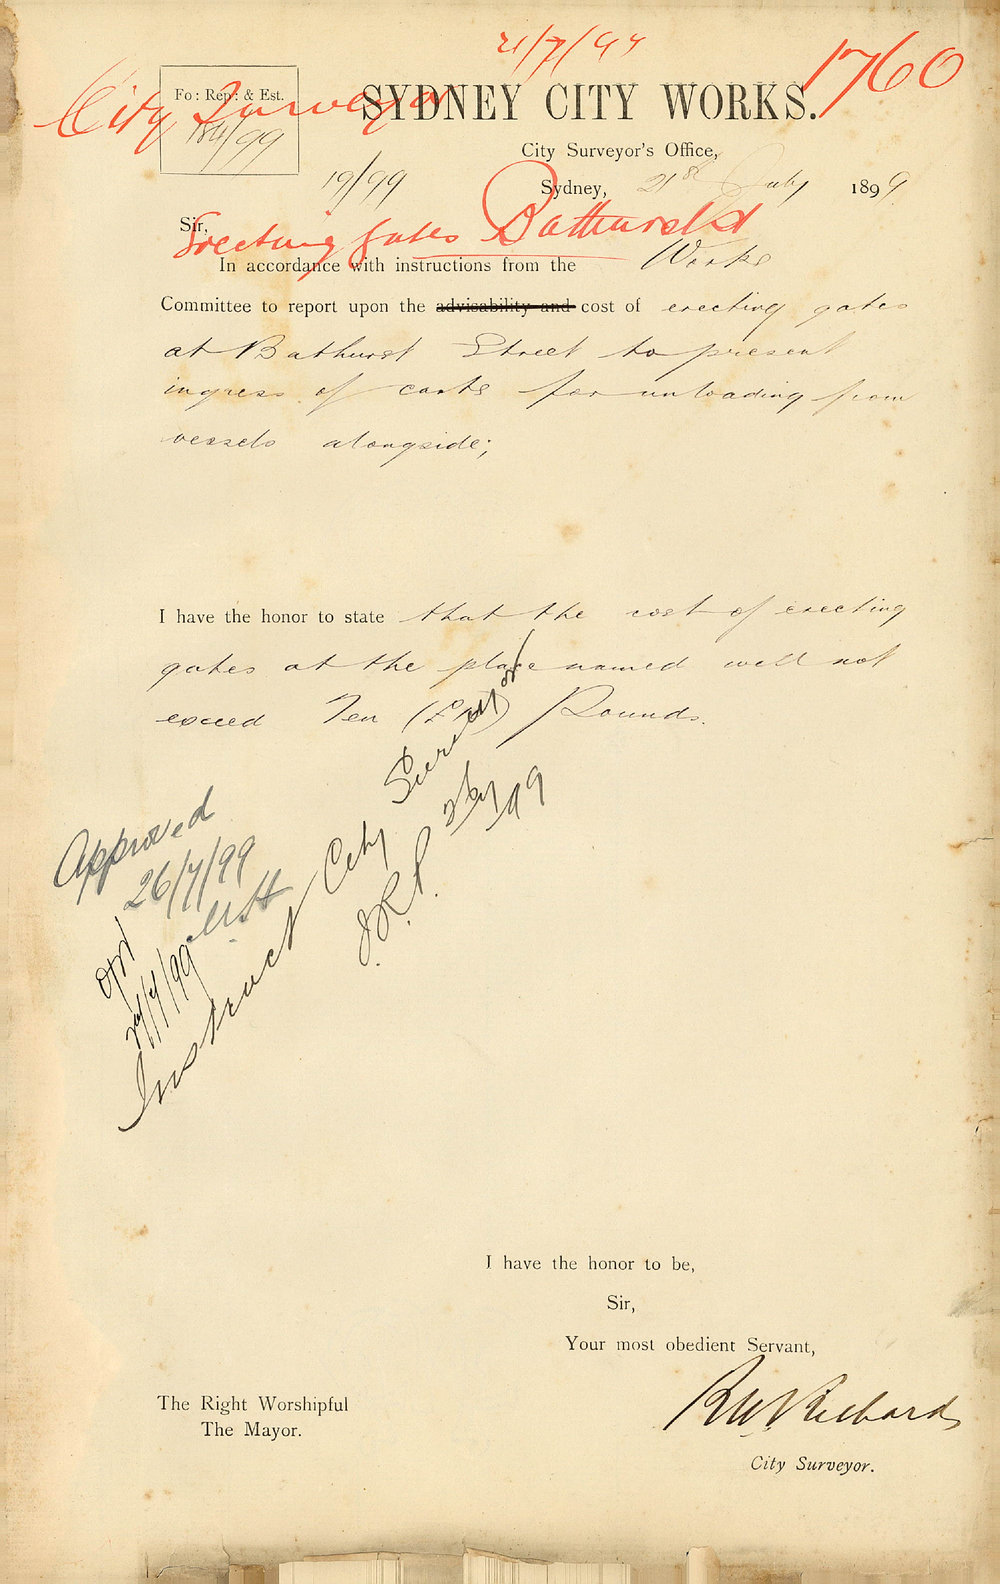 21/7/99
1760
City Surveyor
Fo: Rep: & Est.
184/99
SYDNEY CITY WORKS.
City Surveyor's Office,
19/99
Sydney, 21st July 1899
Sir,
Erecting gates Bathurst St
In accordance with instructions from the Works
Committee to report upon the advisability and cost of erecting gates
at Bathurst Street to present
ingress of carts for unloading from
vessels alongside;
I have the honor to state that the cost of erecting
gates at the place named will not
exceed Ten (£10) Pounds.
Approved
26/7/99
Instruct City Surveyor
J.R.P.
I have the honor to be,
Sir,
Your most obedient Servant,
The Right Worshipful
The Mayor.
R W Richards
City Surveyor.